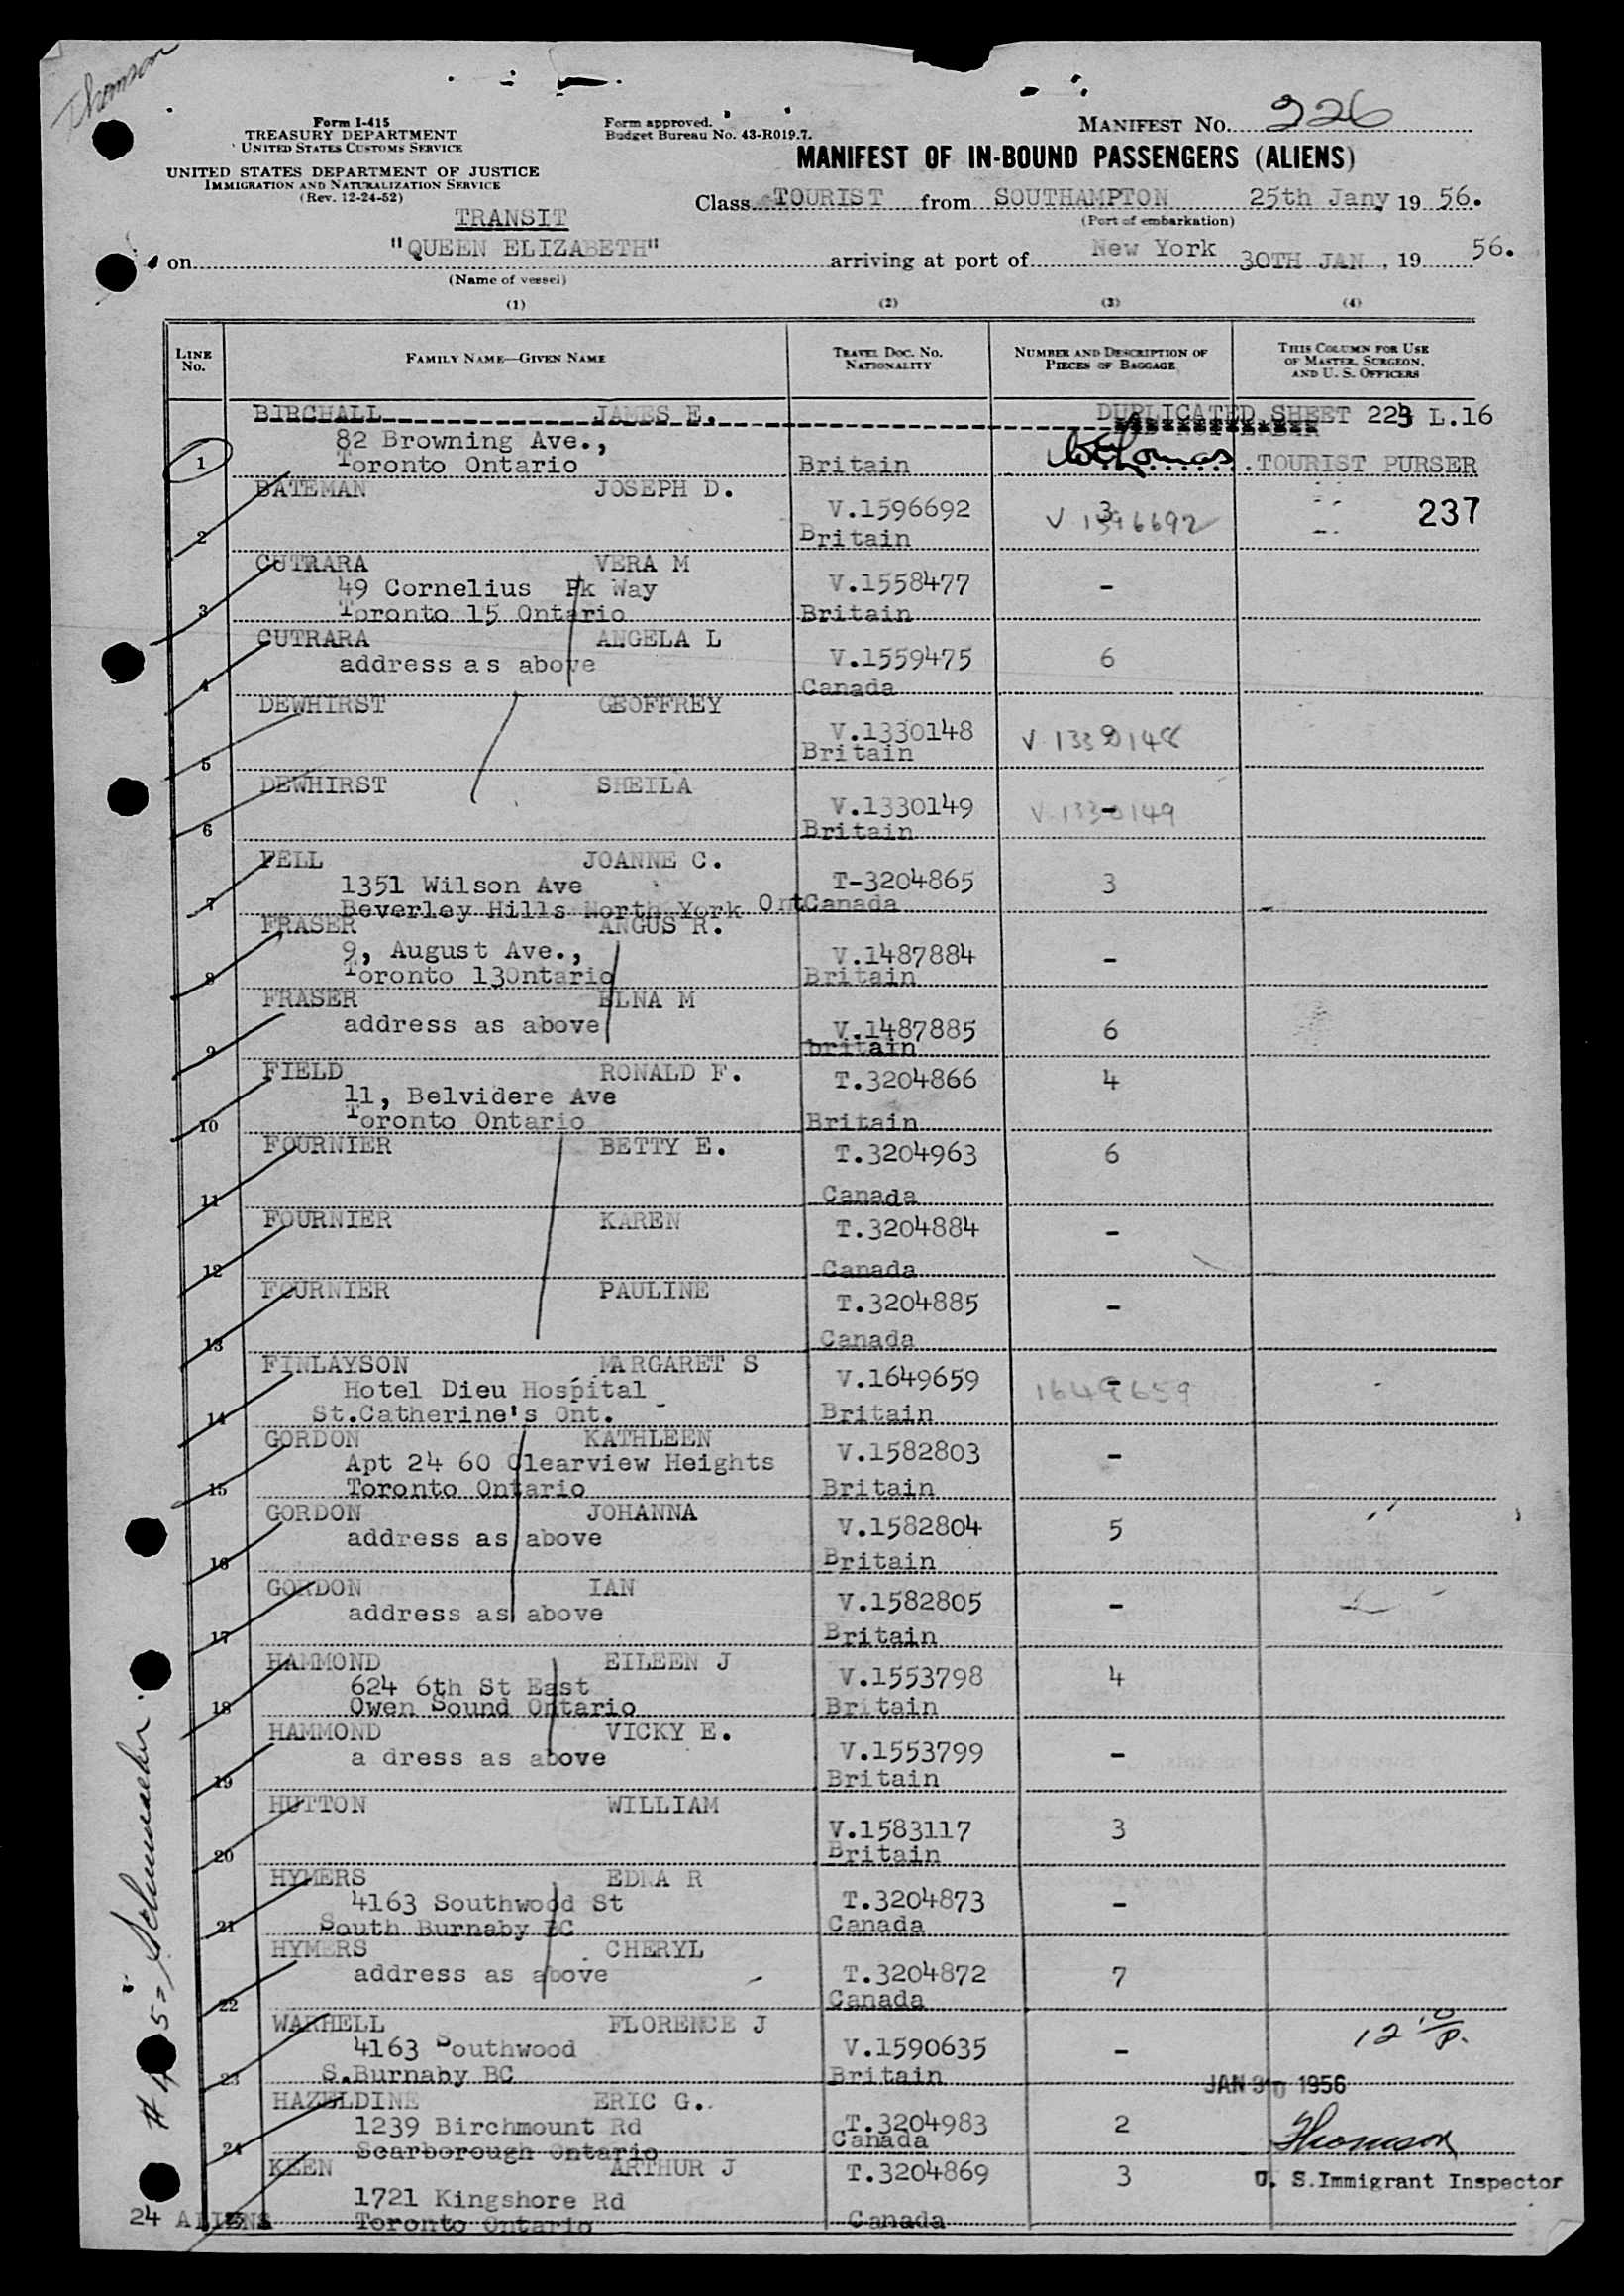 Thomson
Form I-415
TREASURY DEPARTMENT
UNITED STATES CUSTOMS SERVICE
UNITED STATES DEPARTMENT OF JUSTICE
IMMIGRATION AND NATURALIZATION SERVICE
(Rev. 12-24-52)
Form approved.
Budget Bureau No. 43-R019.7.
MANIFEST NO. 226
MANIFEST OF IN-BOUND PASSENGERS (ALIENS)
Class TOURIST from SOUTHAMPTON 25th Jany 19 56.
(Port of embarkation)
TRANSIT
on "QUEEN ELIZABETH" arriving at port of New York 30TH JAN, 19 56.
(Name of vessel)
(1) (2) (3) (4)
LINE No. FAMILY NAME—GIVEN NAME TRAVEL DOC. NO. NATIONALITY NUMBER AND DESCRIPTION OF PIECES OF BAGGAGE THIS COLUMN FOR USE OF MASTER, SURGEON, AND U. S. OFFICERS
BIRCHALL JAMES E. DUPLICATED SHEET 223 L.16
82 Browning Ave.,
1 Toronto Ontario Britain TOURIST PURSER
BATEMAN JOSEPH D.
V.1596692 3 V 1596692 237
2 Britain
CUTRARA VERA M
49 Cornelius Pk Way V.1558477 -
3 Toronto 15 Ontario Britain
CUTRARA ANGELA L
address as above V.1559475 6
4 Canada
DEWHIRST GEOFFREY
V.1330148 V 1330148
5 Britain
DEWHIRST SHEILA
V.1330149 - V.1330149
6 Britain
FELL JOANNE C.
1351 Wilson Ave T-3204865 3
7 Beverley Hills North York Ont Canada
FRASER ANGUS R.
9, August Ave., V.1487884 -
8 Toronto 13Ontario Britain
FRASER ELNA M
address as above V.1487885 6
9 britain
FIELD RONALD F. T.3204866 4
11, Belvidere Ave
10 Toronto Ontario Britain
FOURNIER BETTY E. T.3204963 6
11 Canada
FOURNIER KAREN T.3204884 -
12 Canada
FOURNIER PAULINE T.3204885 -
13 Canada
FINLAYSON MARGARET S
Hotel Dieu Hospital V.1649659 - 1649659
14 St.Catherine's Ont. Britain
GORDON KATHLEEN
Apt 24 60 Clearview Heights V.1582803 -
15 Toronto Ontario Britain
GORDON JOHANNA
address as above V.1582804 5
16 Britain
GORDON IAN
address as above V.1582805 -
17 Britain
HAMMOND EILEEN J
624 6th St East V.1553798 4
18 Owen Sound Ontario Britain
HAMMOND VICKY E.
a dress as above V.1553799 -
19 Britain
HUTTON WILLIAM
V.1583117 3
20 Britain
HYMERS EDNA R
4163 Southwood St T.3204873 -
21 South Burnaby BC Canada
HYMERS CHERYL
address as above T.3204872 7
22 Canada
WARHELL FLORENCE J
4163 Southwood V.1590635 - 12
23 S.Burnaby BC Britain
JAN 30 1956
HAZELDINE ERIC G.
1239 Birchmount Rd T.3204983 2 Thomson
24 Scarborough Ontario Canada
KEEN ARTHUR J T.3204869 3 U. S.Immigrant Inspector
1721 Kingshore Rd
24 ALIENS Toronto Ontario Canada
Schumacher